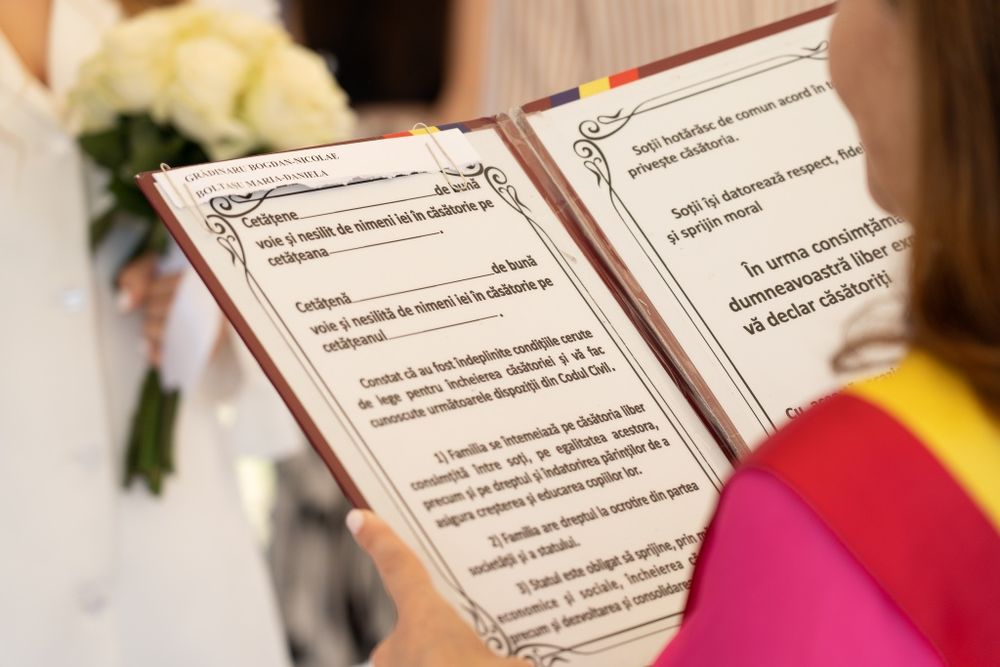 GRĂDINARU BOGDAN-NICOLAE
BOLTAȘU MARIA-DANIELA
Cetățene ____________________ de bună
voie și nesilit de nimeni iei în căsătorie pe
cetățeana ____________________.
Cetățenă ____________________ de bună
voie și nesilită de nimeni iei în căsătorie pe
cetățeanul ____________________.
Constat că au fost îndeplinite condițiile cerute
de lege pentru încheierea căsătoriei și vă fac
cunoscute următoarele dispoziții din Codul Civil.
1) Familia se întemeiază pe căsătoria liber
consimțită între soți, pe egalitatea acestora,
precum și pe dreptul și îndatorirea părinților de a
asigura creșterea și educarea copiilor lor.
2) Familia are dreptul la ocrotire din partea
societății și a statului.
3) Statul este obligat să sprijine, prin
economice și sociale, încheierea
precum și dezvoltarea și consolidarea
Soții hotărăsc de comun acord în
privește căsătoria.
Soții își datorează respect,
și sprijin moral
În urma
dumneavoastră liber
vă declar căsătoriți
Cu